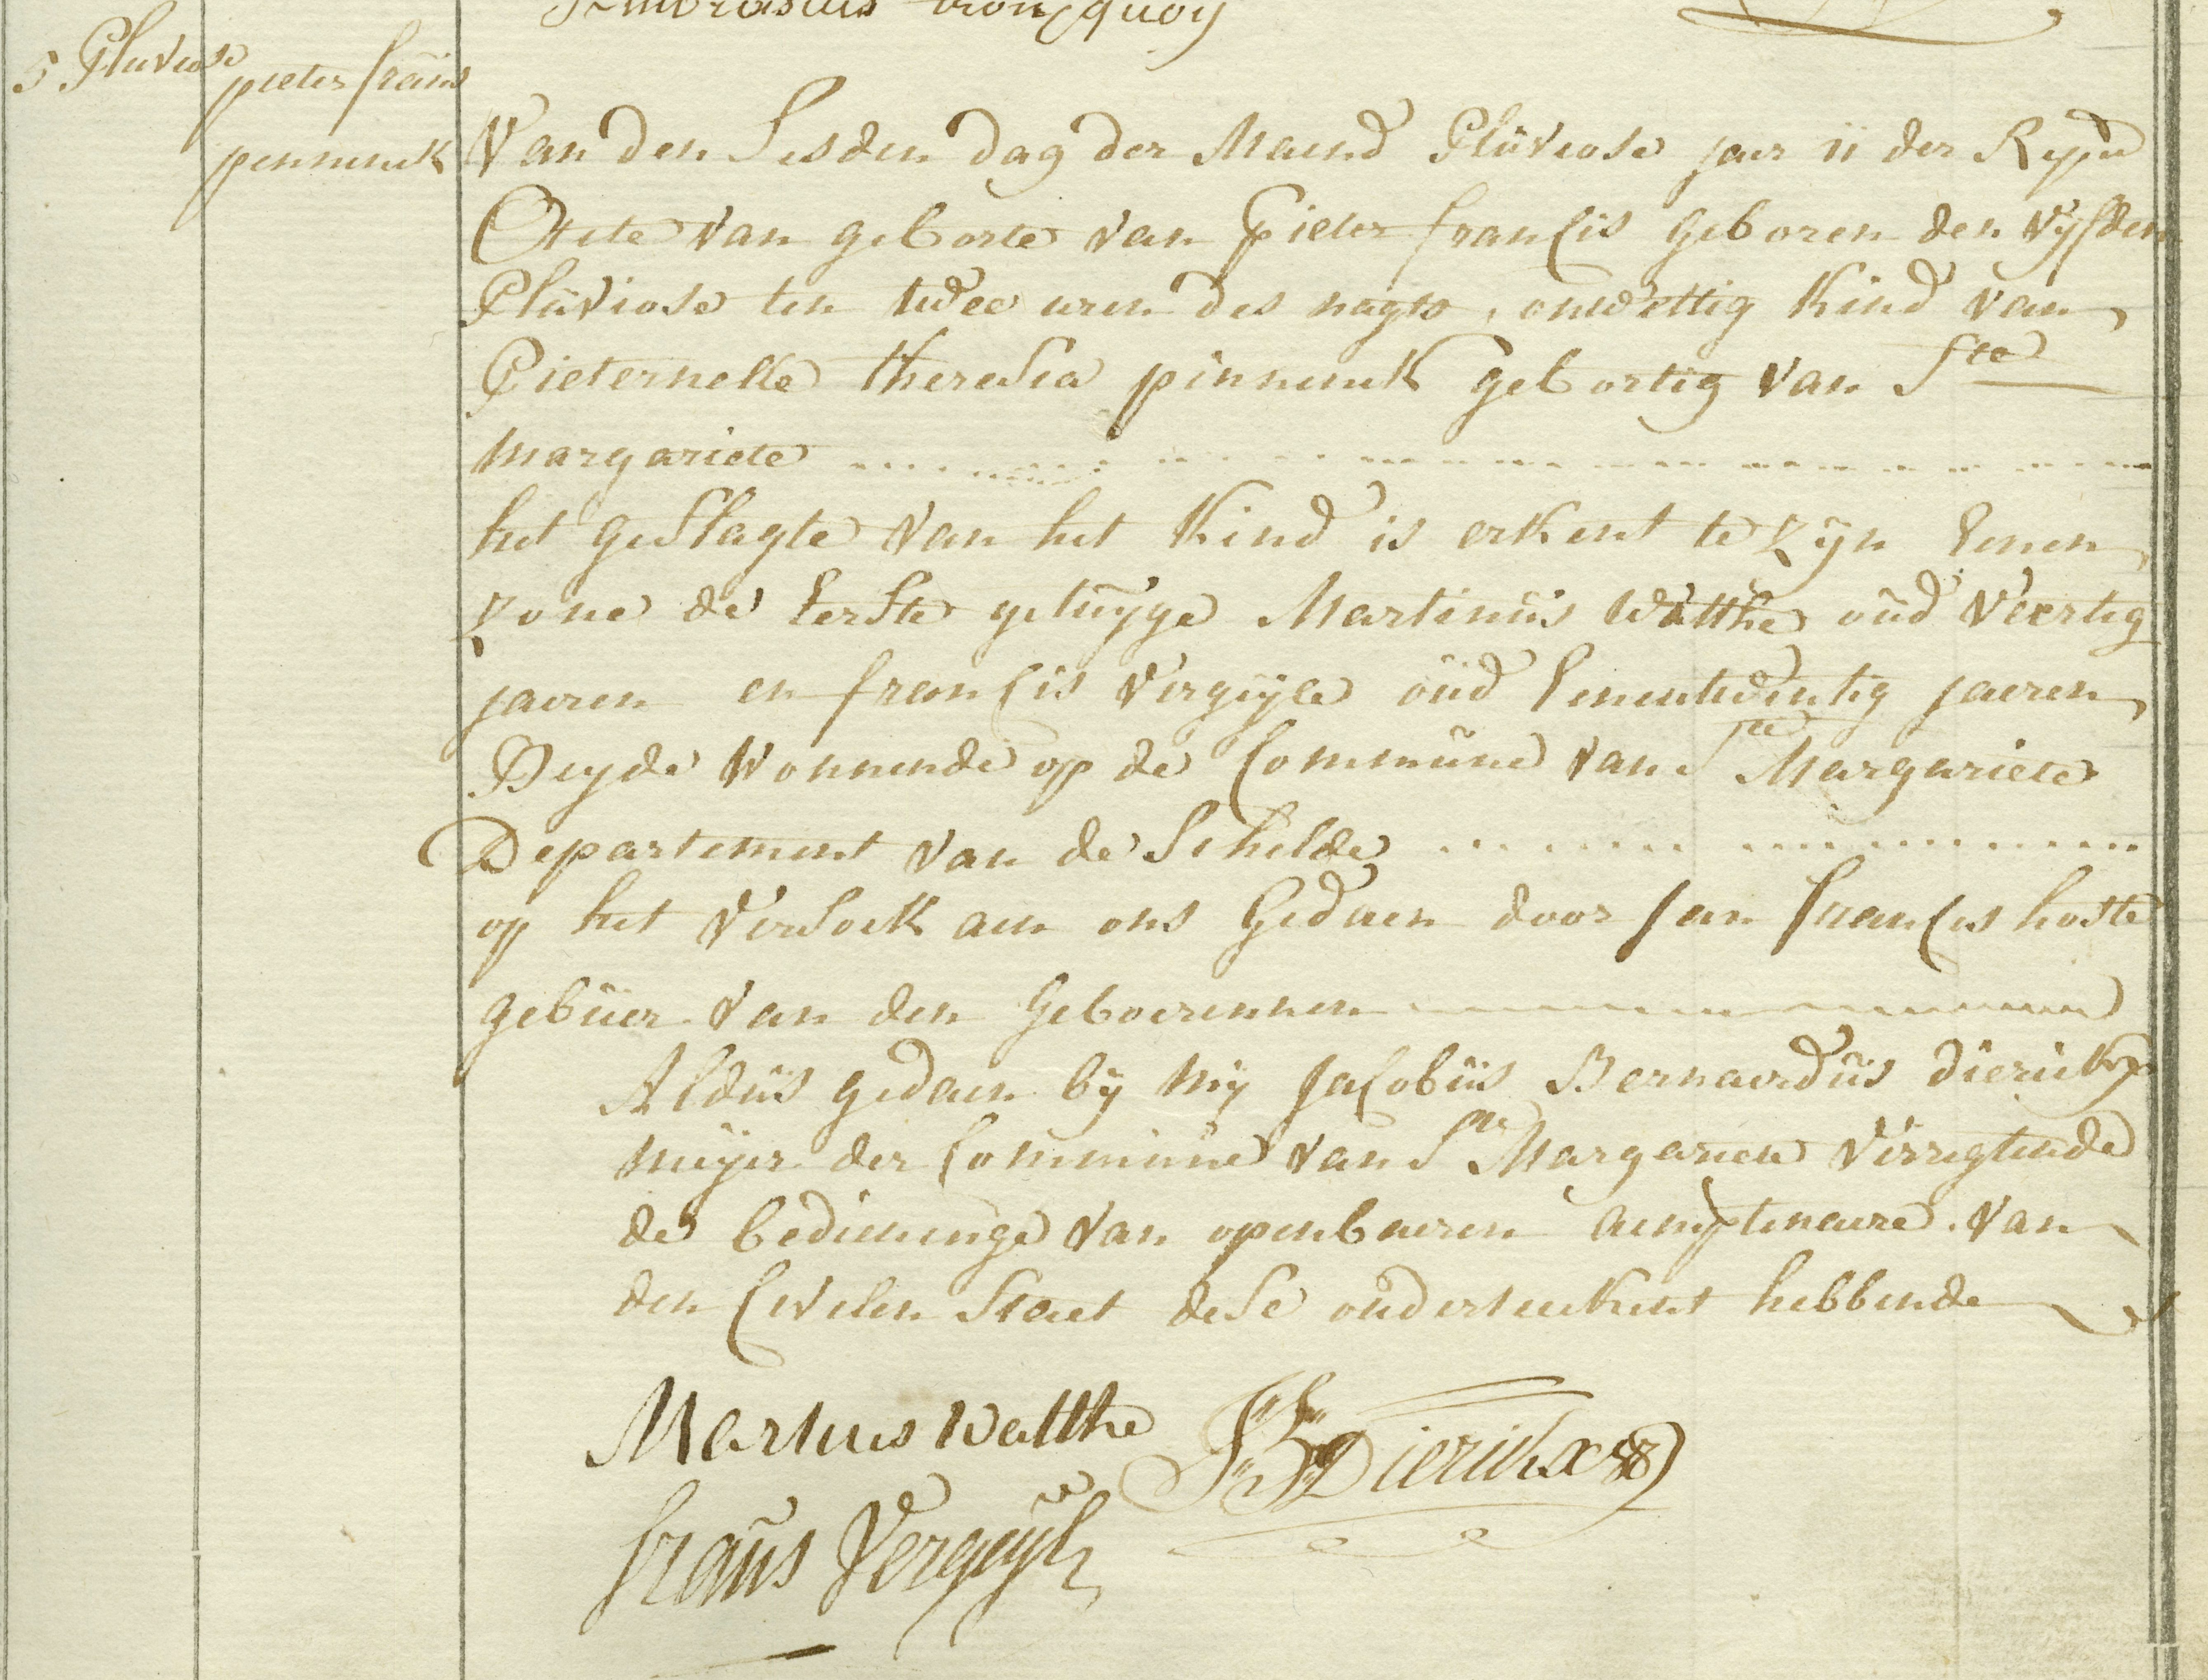 5 Pluviose
pieter frans
penninck
Van den Sesden dag der Maend Pluviose jaer 11 der Repu
Acte van geborte van Pieter francis geboren den Vyfden
Pluviose ten twee uren des nagts, onwettig Kind van
Pieternelle theresia pinninck gebortig van Ste
Margariete
het geslagte van het Kind is erkent te zyn Eenen
zone de Eerste getuyge Martinus Watthe oud Veertig
jaeren en francis Vergeyle oud Eenentwintig jaeren
Beyde Wonnende op de Commune van Ste Margariete
Departement van de Schelde
op het Versoek aen ons Gedaen door Jan francis hoste
gebuer van den Geboerennen
Aldus gedaen by my Jacobus Bernardus dierickx
meyer der Commune van Ste Margariete Verregtende
de bedieninge van openbaeren amptenaere van
den Civilen Staet dese onderteekent hebbende
Martinus Watthe
JB Dierickx
frans Vergeyle